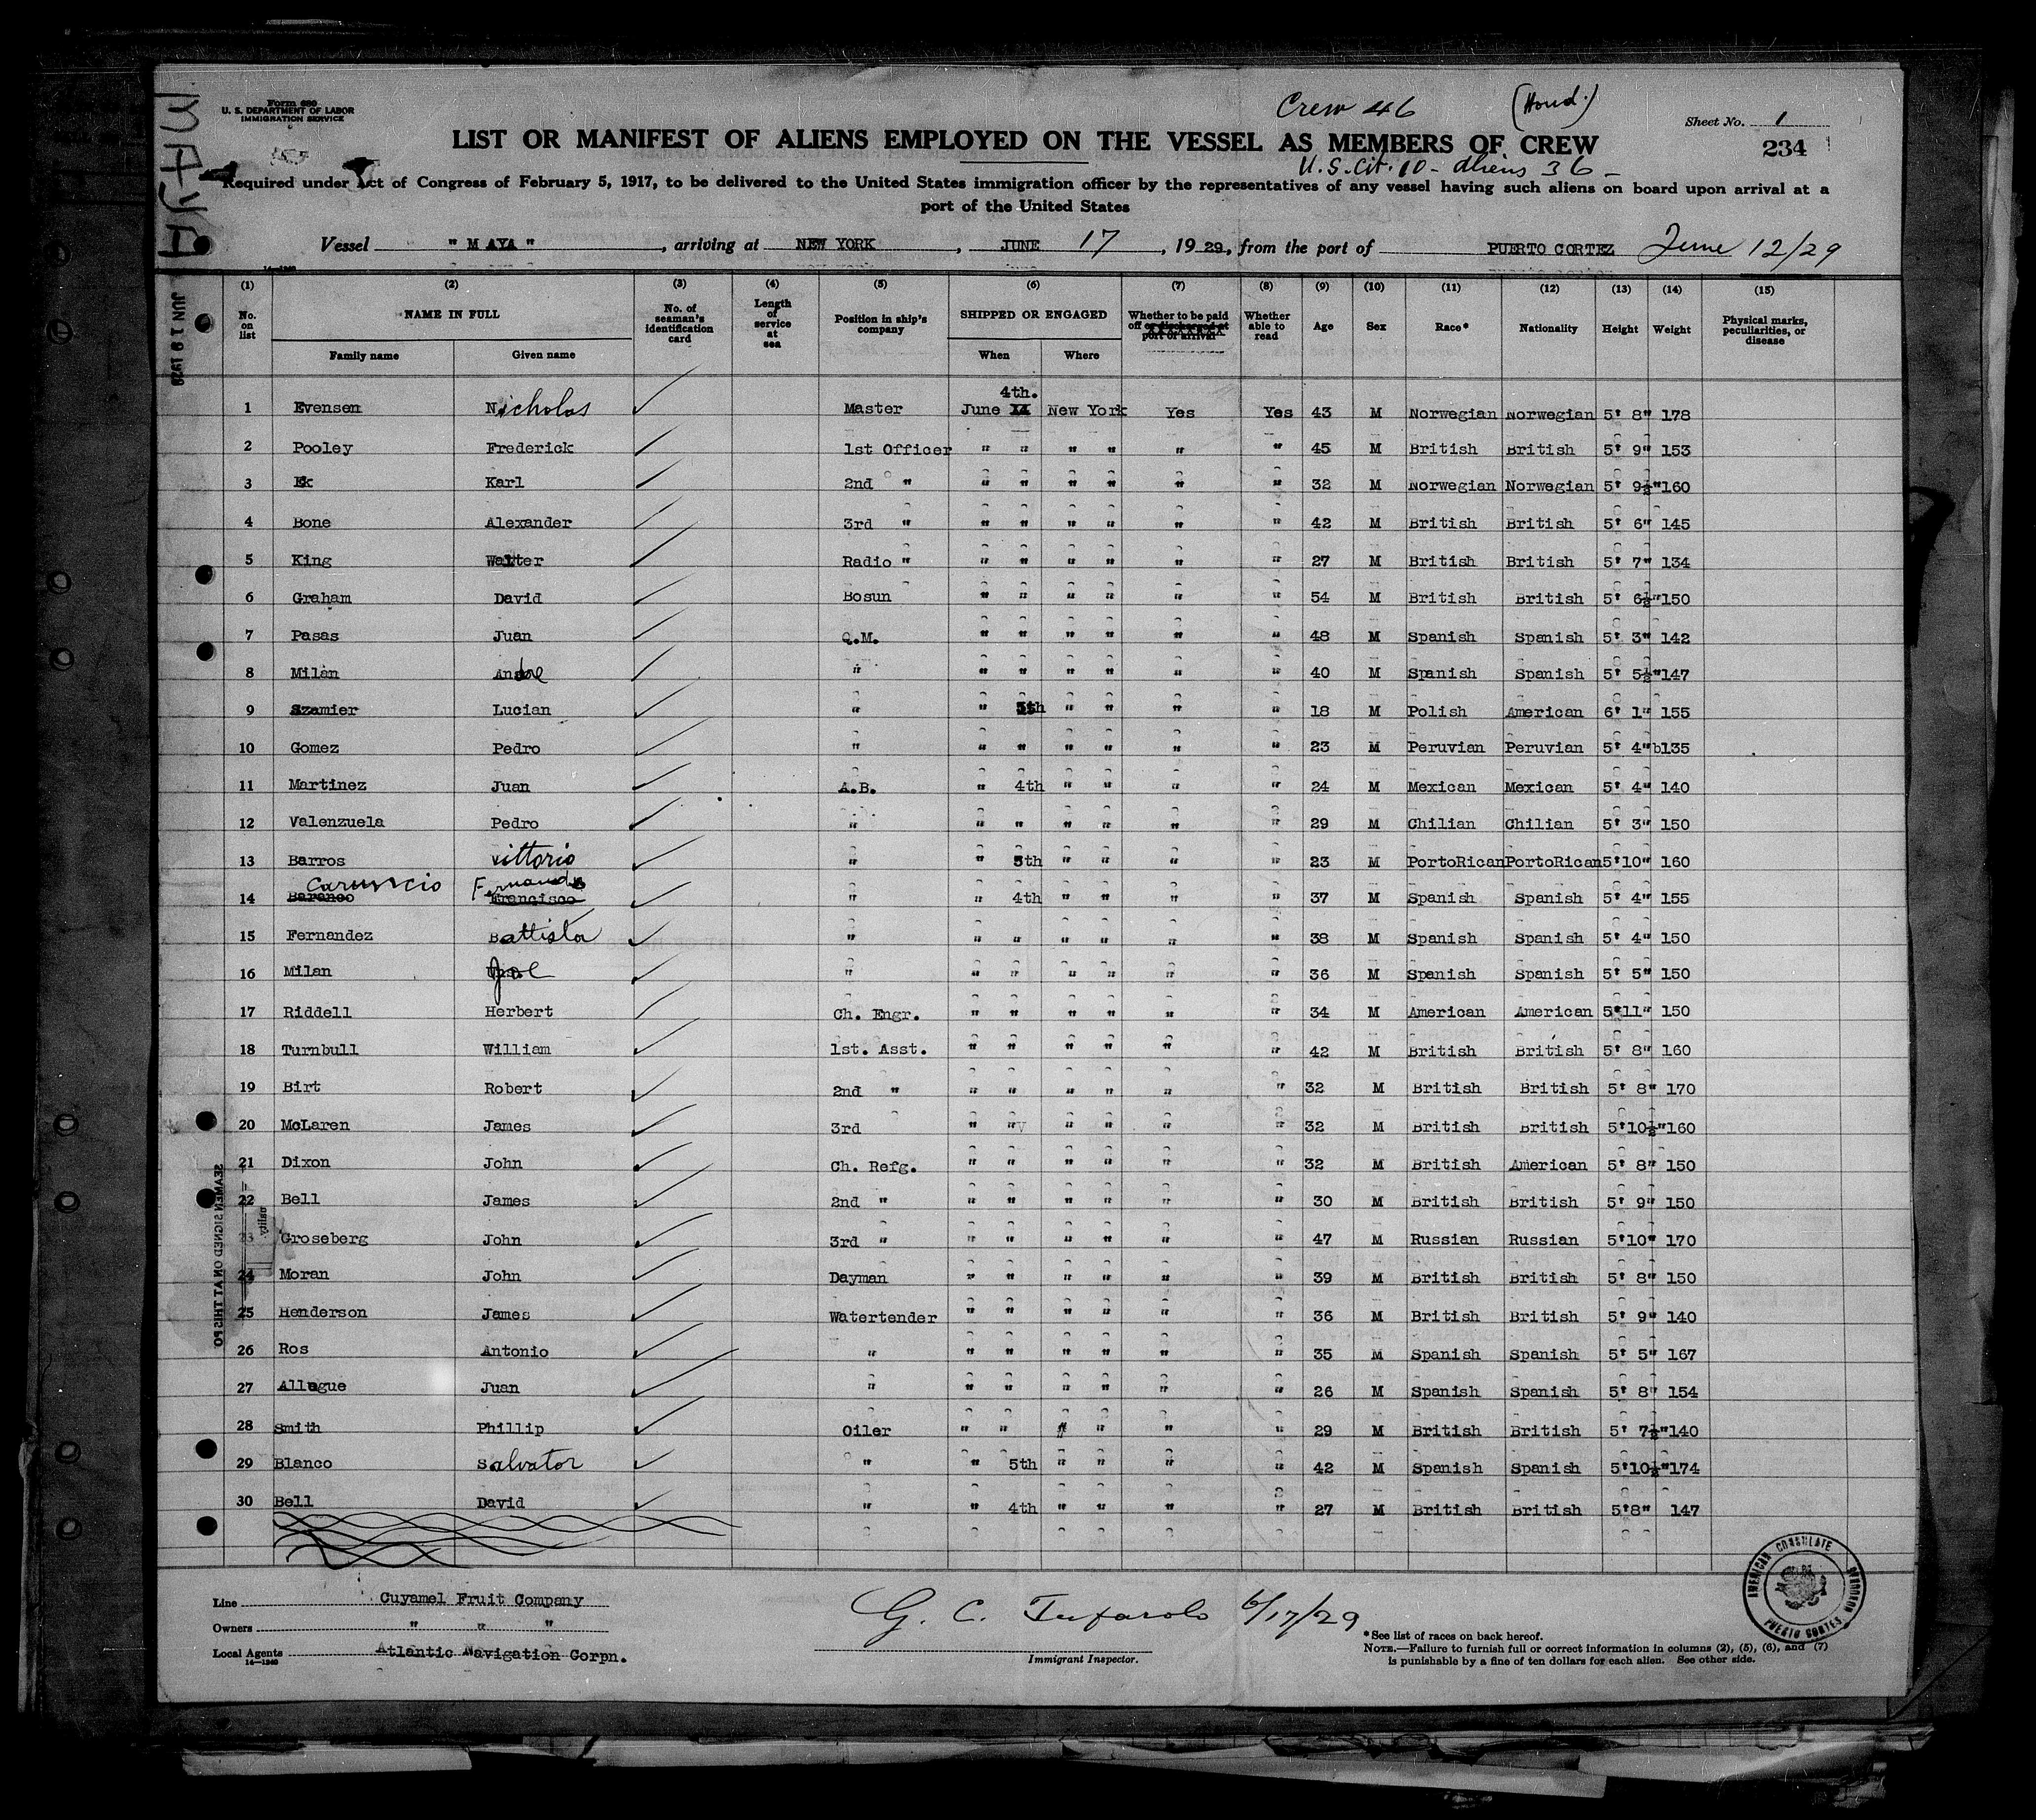 Form 680
U. S. DEPARTMENT OF LABOR
IMMIGRATION SERVICE
Crew 46 (Hond.)
Sheet No. 1
LIST OR MANIFEST OF ALIENS EMPLOYED ON THE VESSEL AS MEMBERS OF CREW
234
U.S. Cit. 10 - Aliens 36 -
Required under Act of Congress of February 5, 1917, to be delivered to the United States immigration officer by the representatives of any vessel having such aliens on board upon arrival at a
port of the United States
MAYA
JUN 19 1929
Vessel " MAYA ", arriving at NEW YORK, JUNE 17, 1929, from the port of PUERTO CORTEZ June 12/29
(1) (2) (3) (4) (5) (6) (7) (8) (9) (10) (11) (12) (13) (14) (15)
No. on list NAME IN FULL Family name Given name No. of seaman's identification card Length of service at sea Position in ship's company SHIPPED OR ENGAGED When Where Whether to be paid off or discharged at port of arrival Whether able to read Age Sex Race* Nationality Height Weight Physical marks, peculiarities, or disease
1 Evensen Nicholas Master June 4th. New York Yes Yes 43 M Norwegian Norwegian 5' 8" 178
2 Pooley Frederick 1st Officer " " " " " " 45 M British British 5' 9" 153
3 Ek Karl 2nd " " " " " " " 32 M Norwegian Norwegian 5' 9½" 160
4 Bone Alexander 3rd " " " " " " " 42 M British British 5' 6" 145
5 King Walter Radio " " " " " " " 27 M British British 5' 7" 134
6 Graham David Bosun " " " " " " 54 M British British 5' 6½" 150
7 Pasas Juan Q.M. " " " " " " 48 M Spanish Spanish 5' 3" 142
8 Milan Andre " " " " " " " 40 M Spanish Spanish 5' 5½" 147
9 Szamier Lucian " " 5th " " " " 18 M Polish American 6' 1" 155
10 Gomez Pedro " " " " " " " 23 M Peruvian Peruvian 5' 4"b135
11 Martinez Juan A.B. " 4th " " " " 24 M Mexican Mexican 5' 4" 140
12 Valenzuela Pedro " " " " " " " 29 M Chilian Chilian 5' 3" 150
13 Barros Vittorio " " 5th " " " " 23 M PortoRican PortoRican 5'10" 160
14 Baranco Francisco Fernando " " 4th " " " " 37 M Spanish Spanish 5' 4" 155
15 Fernandez Battista " " " " " " " 38 M Spanish Spanish 5' 4" 150
16 Milan " " " " " " " 36 M Spanish Spanish 5' 5" 150
17 Riddell Herbert Ch. Engr. " " " " " " 34 M American American 5'11" 150
18 Turnbull William 1st. Asst. " " " " " " 42 M British British 5' 8" 160
19 Birt Robert 2nd " " " " " " " 32 M British British 5' 8" 170
20 McLaren James 3rd " " " " " " 32 M British British 5'10½" 160
21 Dixon John Ch. Refg. " " " " " " 32 M British American 5' 8" 150
22 Bell James 2nd " " " " " " " 30 M British British 5' 9" 150
23 Groseberg John 3rd " " " " " " " 47 M Russian Russian 5'10" 170
24 Moran John Dayman " " " " " " 39 M British British 5' 8" 150
25 Henderson James Watertender " " " " " " 36 M British British 5' 9" 140
26 Ros Antonio " " " " " " " 35 M Spanish Spanish 5' 5" 167
27 Allegue Juan " " " " " " " 26 M Spanish Spanish 5' 8" 154
28 Smith Phillip Oiler " " # " " " 29 M British British 5' 7½" 140
29 Blanco Salvator " " 5th " " " " 42 M Spanish Spanish 5'10½" 174
30 Bell David " " 4th " " " " 27 M British British 5'8" 147
Line Cuyamel Fruit Company
Owners " " "
Local Agents Atlantic Navigation Corpn.
14-1240
G. C. Tufarolo 6/17/29
Immigrant Inspector.
*See list of races on back hereof.
NOTE.—Failure to furnish full or correct information in columns (2), (5), (6), and (7)
is punishable by a fine of ten dollars for each alien. See other side.
AMERICAN CONSULATE
PUERTO CORTES HONDURAS